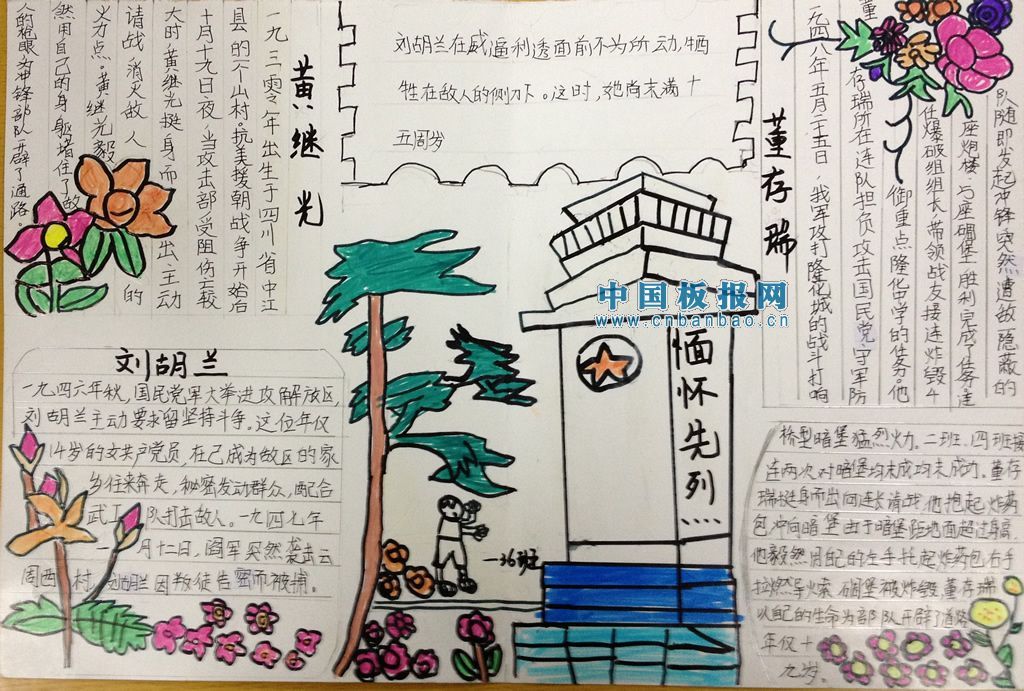 黄继光
一九三零年出生于四川省中江
县的一个山村。抗美援朝战争开始后
十月十九日夜,当攻击部受阻伤亡较
大时黄继光挺身而出,主动
请战消灭敌人的
火力点。黄继光毅
然用自己的身躯堵住了敌
人的枪眼为冲锋部队开辟了通路。
刘胡兰在威逼利透面前不为所动,牺
牲在敌人的侧刀下。这时,她尚未满十
五周岁
董存瑞
一九四八年五月二十五日,我军攻打隆化城的战斗打响
董存瑞所在连队担负攻击国民党守军防
御重点隆化中学的任务。他
任爆破组组长,带领战友接连炸毁4
座炮楼、5座碉堡,胜利完成了任务。连
队随即发起冲锋突然遭敌隐蔽的
桥型暗堡猛烈火力。二班、四班接
连两次对暗堡均未成均未成功。董存
瑞挺身而出向连长请战,他抱起炸药
包冲向暗堡由于暗堡距地面超过身高,
他毅然用自己的左手托起炸药包右手
拉燃导火索,碉堡被炸毁,董存瑞
以自己的生命为部队开辟了道路
年仅十
九岁。
刘胡兰
一九四六年秋,国民党军大举进攻解放区,
刘胡兰主动要求留坚持斗争。这位年仅
14岁的女共产党员,在已成为敌区的家
乡往来奔走,秘密发动群众,配合
武工队打击敌人。一九四七年
一月十二日,阎军突然袭击云
周西村,刘胡兰因叛徒告密而被捕。
缅怀先列
一36班
中国板报网
www.cnbanbao.cn